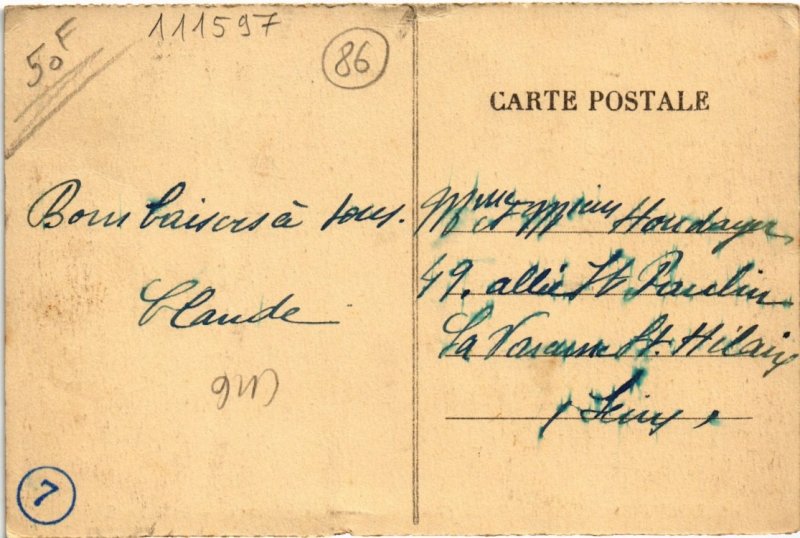 50F
111597
86
CARTE POSTALE
Bons baisers à tous.
Claude
7
Houdayer
49, allée St Paulin
La Varenne St. Hilaire
(Seine)